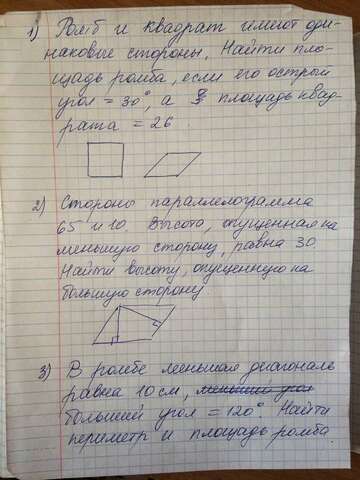 1) Ромб и квадрат имеют оди-
наковые стороны. Найти пло-
щадь ромба, если его острый
угол = 30°, а площадь квад-
рата = 26.
2) Стороны параллелограмма
65 и 10. Высота, опущенная на
меньшую сторону, равна 30.
Найти высоту, опущенную на
большую сторону
3) В ромбе меньшая диагональ
равна 10 см, меньший угол
больший угол = 120°. Найти
периметр и площадь ромба